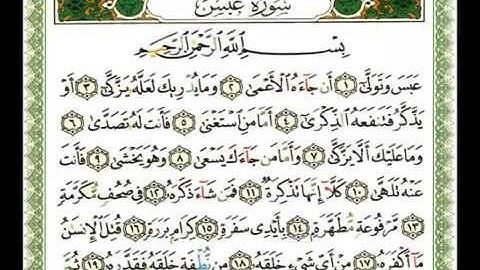 سُورَةُ عَبَسَ
بِسْمِ اللَّهِ الرَّحْمَٰنِ الرَّحِيمِ
عَبَسَ وَتَوَلَّىٰٓ ١ أَن جَآءَهُ ٱلْأَعْمَىٰ ٢ وَمَا يُدْرِيكَ لَعَلَّهُۥ يَزَّكَّىٰٓ ٣ أَوْ
يَذَّكَّرُ فَتَنفَعَهُ ٱلذِّكْرَىٰٓ ٤ أَمَّا مَنِ ٱسْتَغْنَىٰ ٥ فَأَنتَ لَهُۥ تَصَدَّىٰ ٦
وَمَا عَلَيْكَ أَلَّا يَزَّكَّىٰ ٧ وَأَمَّا مَن جَآءَكَ يَسْعَىٰ ٨ وَهُوَ يَخْشَىٰ ٩ فَأَنتَ
عَنْهُ تَلَهَّىٰ ١٠ كَلَّآ إِنَّهَا تَذْكِرَةٌ ١١ فَمَن شَآءَ ذَكَرَهُۥ ١٢ فِى صُحُفٍ مُّكَرَّمَةٍ
١٣ مَّرْفُوعَةٍ مُّطَهَّرَةٍۭ ١٤ بِأَيْدِى سَفَرَةٍ ١٥ كِرَامٍۭ بَرَرَةٍ ١٦ قُتِلَ ٱلْإِنسَٰنُ
مَآ أَكْفَرَهُۥ ١٧ مِنْ أَىِّ شَىْءٍ خَلَقَهُۥ ١٨ مِن نُّطْفَةٍ خَلَقَهُۥ فَقَدَّرَهُۥ ١٩ ثُمَّ